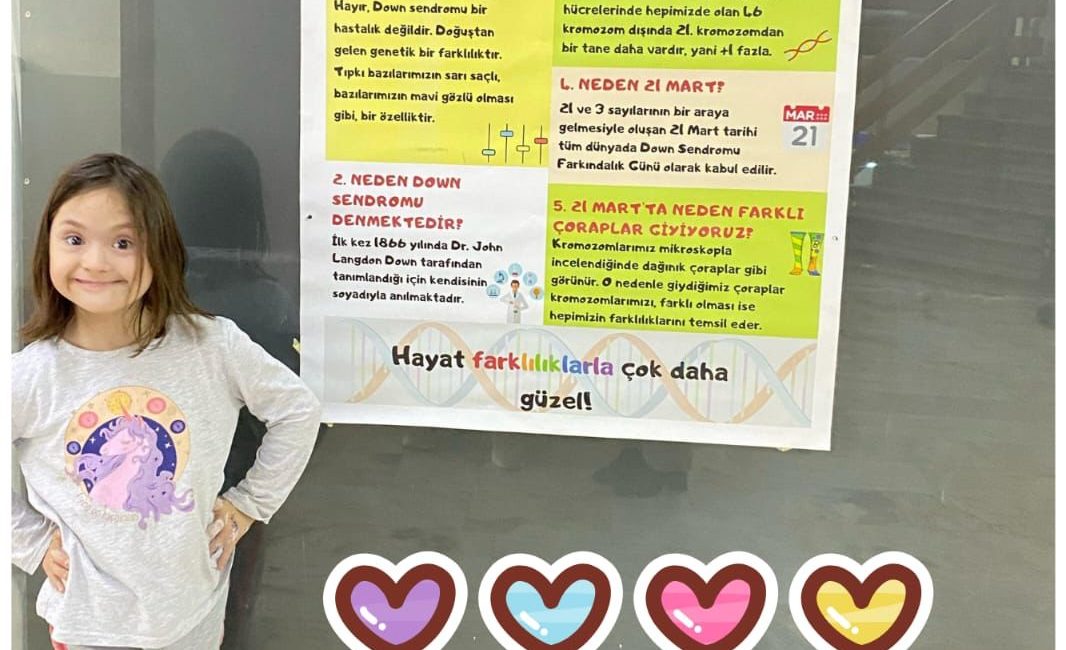 Hayır, Down sendromu bir
hastalık değildir. Doğuştan
gelen genetik bir farklılıktır.
Tıpkı bazılarımızın sarı saçlı,
bazılarımızın mavi gözlü olması
gibi, bir özelliktir.
2. NEDEN DOWN
SENDROMU
DENMEKTEDİR?
İlk kez 1866 yılında Dr. John
Langdon Down tarafından
tanımlandığı için kendisinin
soyadıyla anılmaktadır.
hücrelerinde hepimizde olan 46
kromozom dışında 21. kromozomdan
bir tane daha vardır, yani +1 fazla.
4. NEDEN 21 MART?
21 ve 3 sayılarının bir araya
gelmesiyle oluşan 21 Mart tarihi
tüm dünyada Down Sendromu
Farkındalık Günü olarak kabul edilir.
MAR
21
5. 21 MART'TA NEDEN FARKLI
ÇORAPLAR GİYİYORUZ?
Kromozomlarımız mikroskopla
incelendiğinde dağınık çoraplar gibi
görünür. O nedenle giydiğimiz çoraplar
kromozomlarımızı, farklı olması ise
hepimizin farklılıklarını temsil eder.
Hayat farklılıklarla çok daha
güzel!